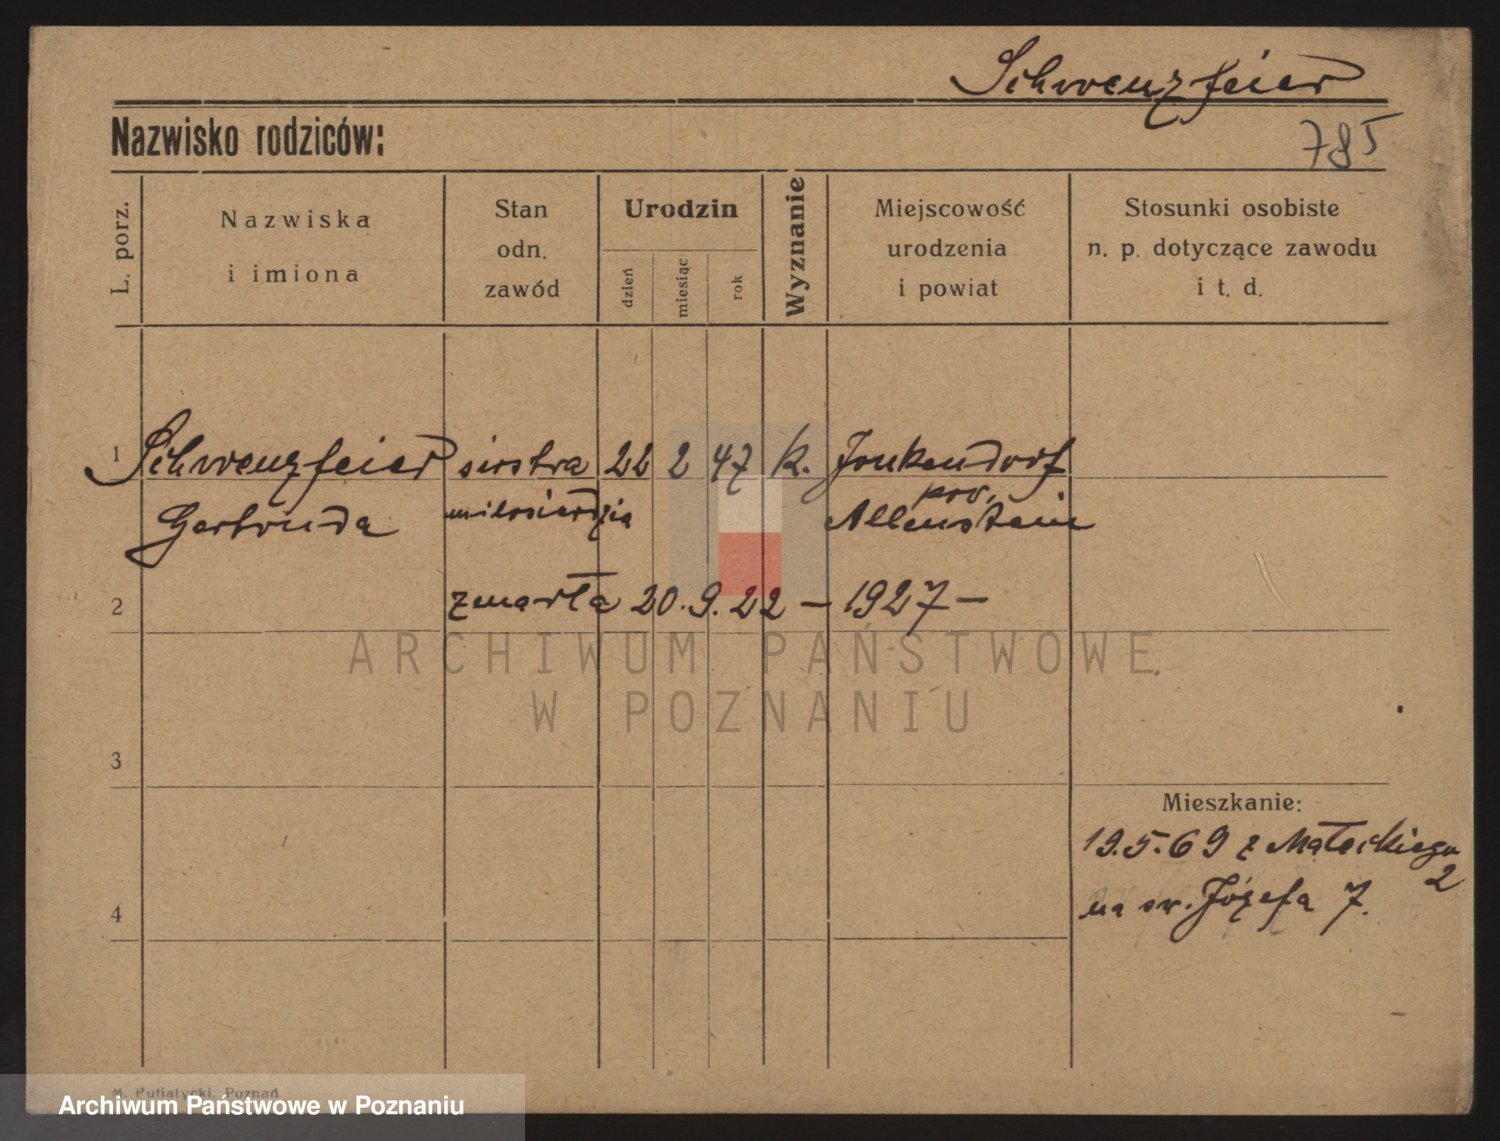 Schwenzfeier
Nazwisko rodziców:
785
L. porz.
Nazwiska
i imiona
Stan
odn.
zawód
Urodzin
dzień
miesiąc
rok
Wyznanie
Miejscowość
urodzenia
i powiat
Stosunki osobiste
n. p. dotyczące zawodu
i t. d.
1 Schwenzfeier siostra 22 2 47 k. Jonkendorf
Gertruda miłosierdzia pow. Allenstein
2 zmarła 20.9.22 – 1927 –
ARCHIWUM PAŃSTWOWE
W POZNANIU
3
Mieszkanie:
19.5.69 z Małeckiego
2
na św. Józefa 7.
4
M. Putiatycki, Poznań
Archiwum Państwowe w Poznaniu